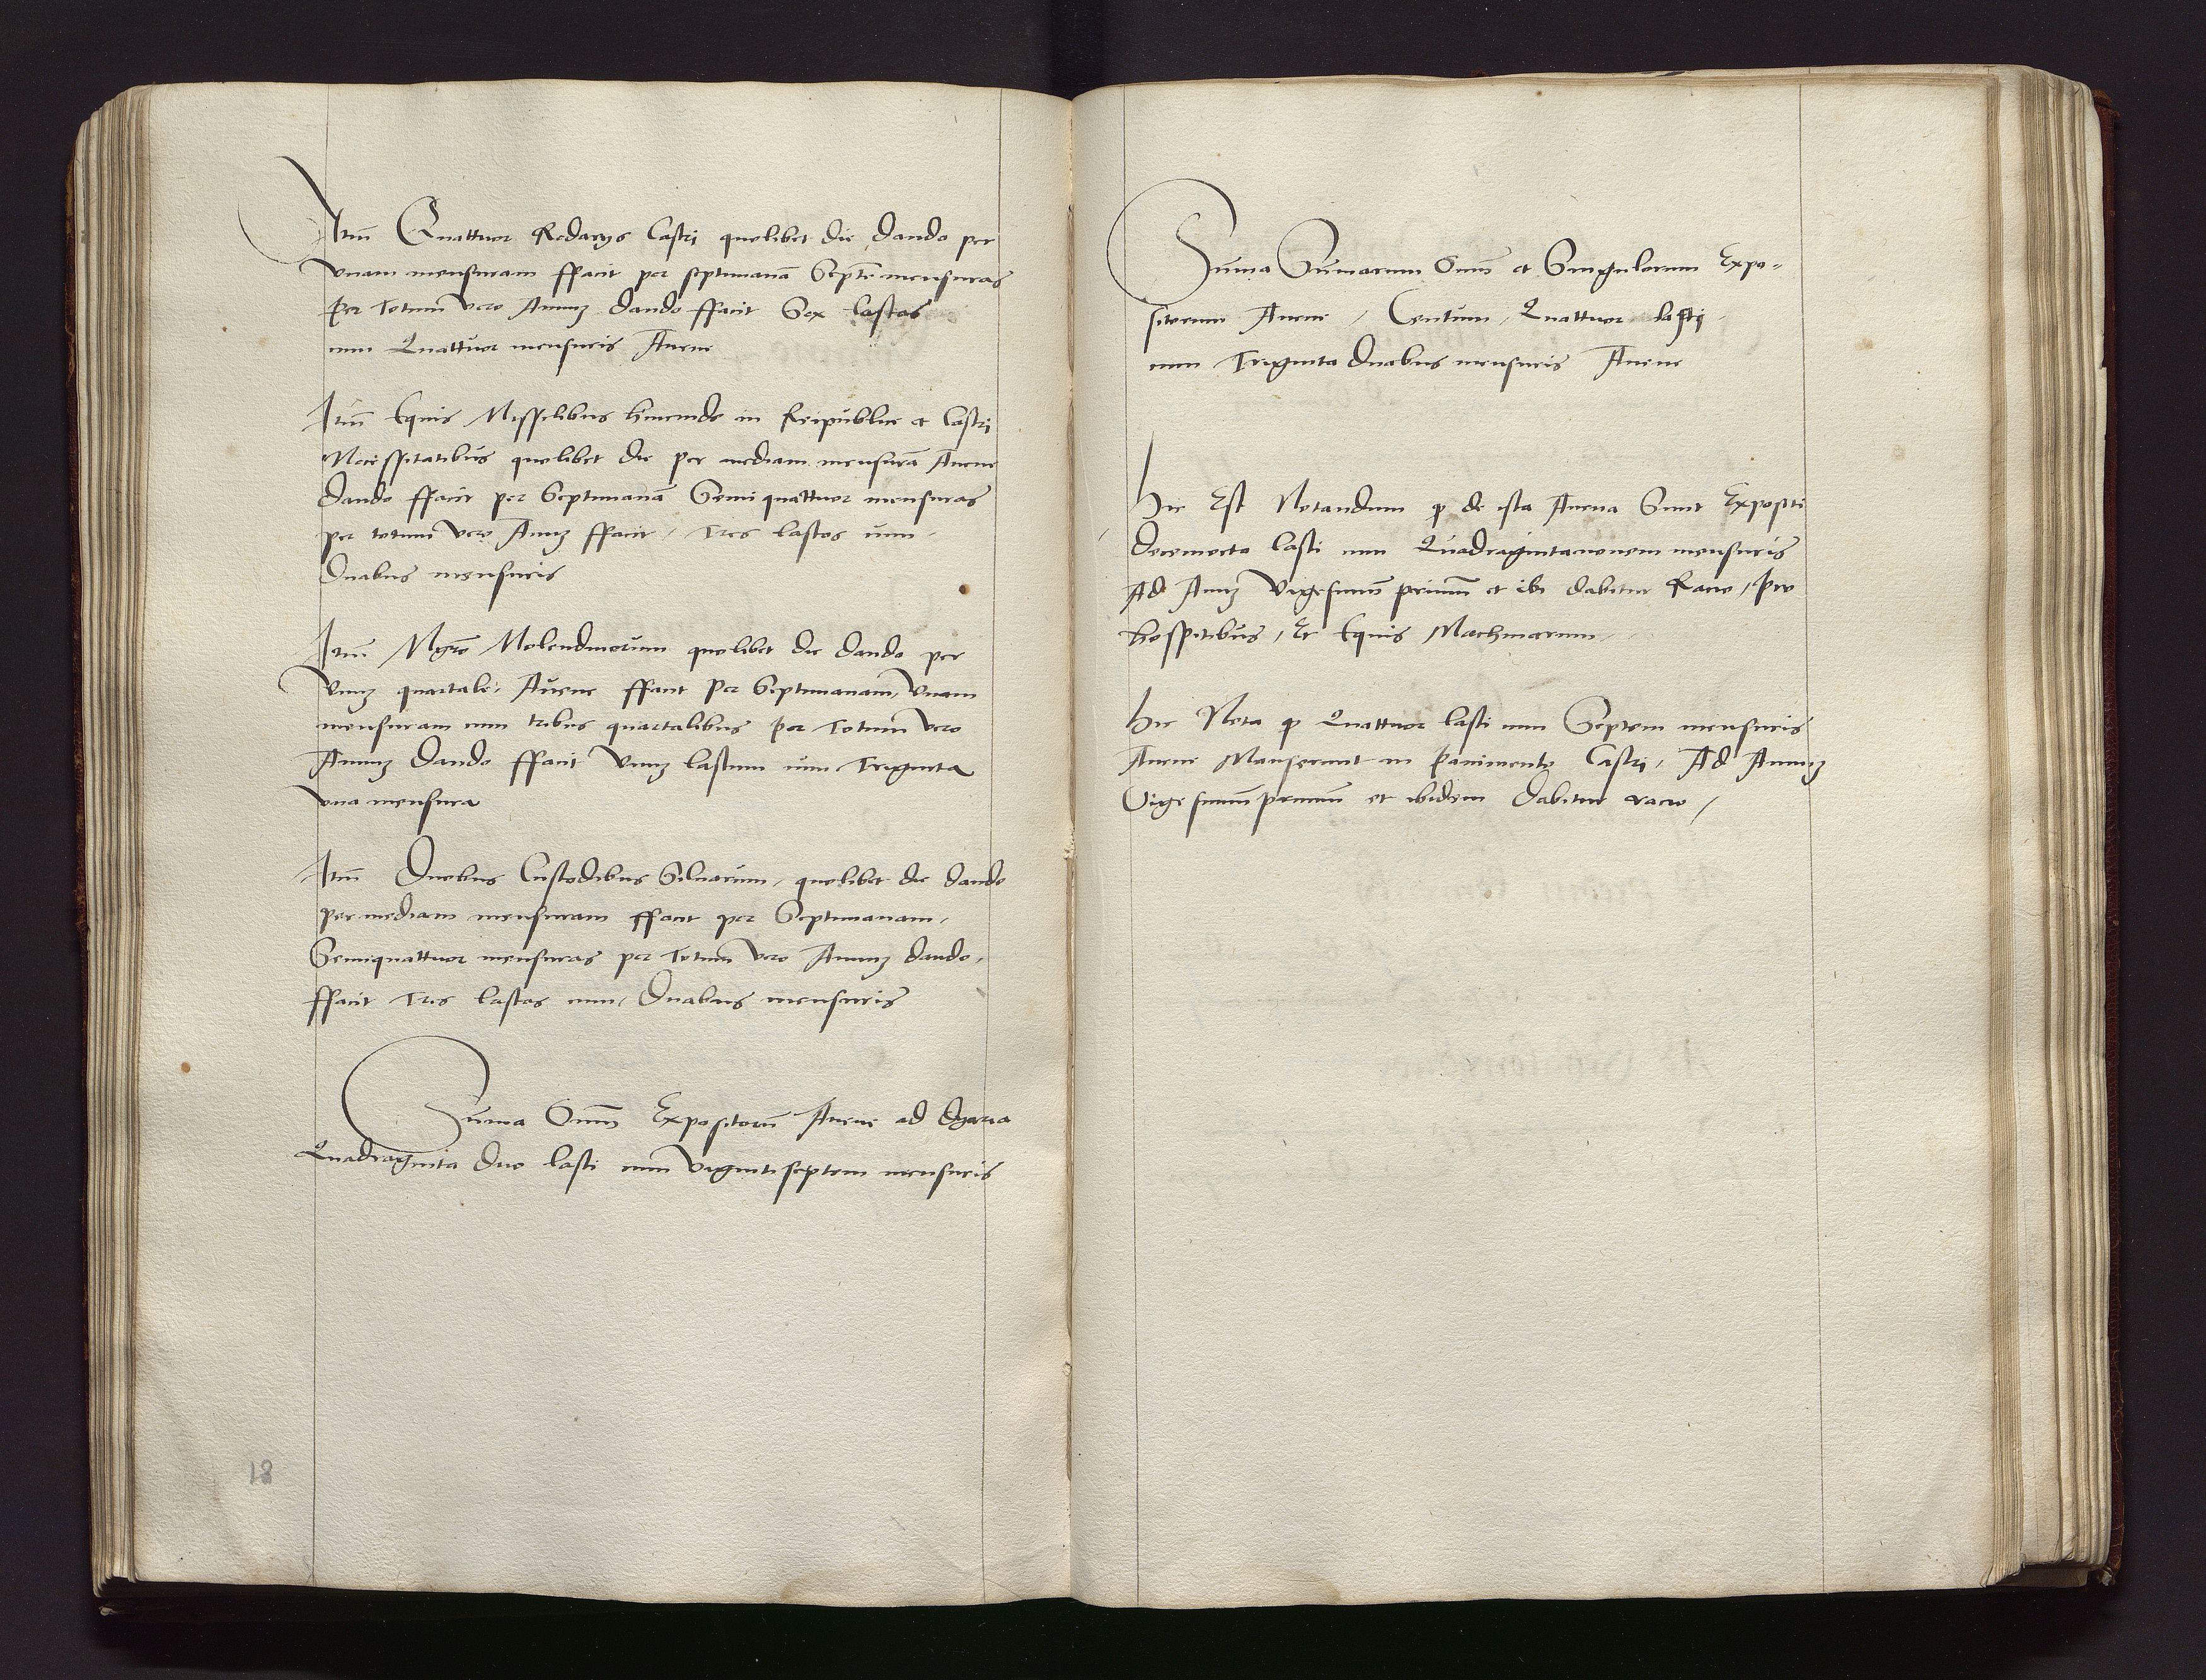 Itm̄ Quattuor Redarijs Castri quolibet die dando per
vnam mensuram ffacit per septimanā Septē mensuras
Per Totum vero Annuʒ dando ffacit Sex lastos
cum Quattuor mensuris Auene
Itm̄ Equis Missilibus huiende in Reipublice et Castri
Necessitatibus quolibet die per mediam mensurā Auene
dando ffacit per Septimanā Semi quattuor mensuras
per totum vero Annuʒ ffacit / Tres lastos cum
Duabus mensuris
Itm̄ Mgr̄o Molendinorum quolibet die dando per
vnuʒ quartale Auene ffacit Per Septimanam, vnam
mensuram cum tribus quartalibus Per Totum vero
Annuʒ dando ffacit vnuʒ lastum cum Triginta
vna mensura
Itm̄ Duobus Custodibus Siluarum, quolibet die dando
per mediam mensuram ffacit per Septimanam,
Semiquattuor mensuras per Totum vero Annuʒ dando,
ffacit Tres lastos cum, Duabus mensuris
Suma Om̄m Expositorū Auene ad
Quadraginta duo lasti cum vigintiseptem mensuris
18
Suma Sumarum Om̄m et Singulorum Expo=
sitorum Auene / Centum, Quattuor lasti
cum Triginta duabus mensuris Auene
Hic Est Notandum ꝙ de ista Auena Sunt Expositi
decemocto lasti cum Quadragintanouem mensuris
Ad Annuʒ vigesimū primum et ibi dabitur Racio, Pro
hospitibus, Et Equis Machinarum
Hic Nota ꝙ Quattuor lasti cum Septem mensuris
Auene Manserunt in Pauimento Castri, Ad Annuʒ
Vigesimumprimum et ibidem dabitur racio /